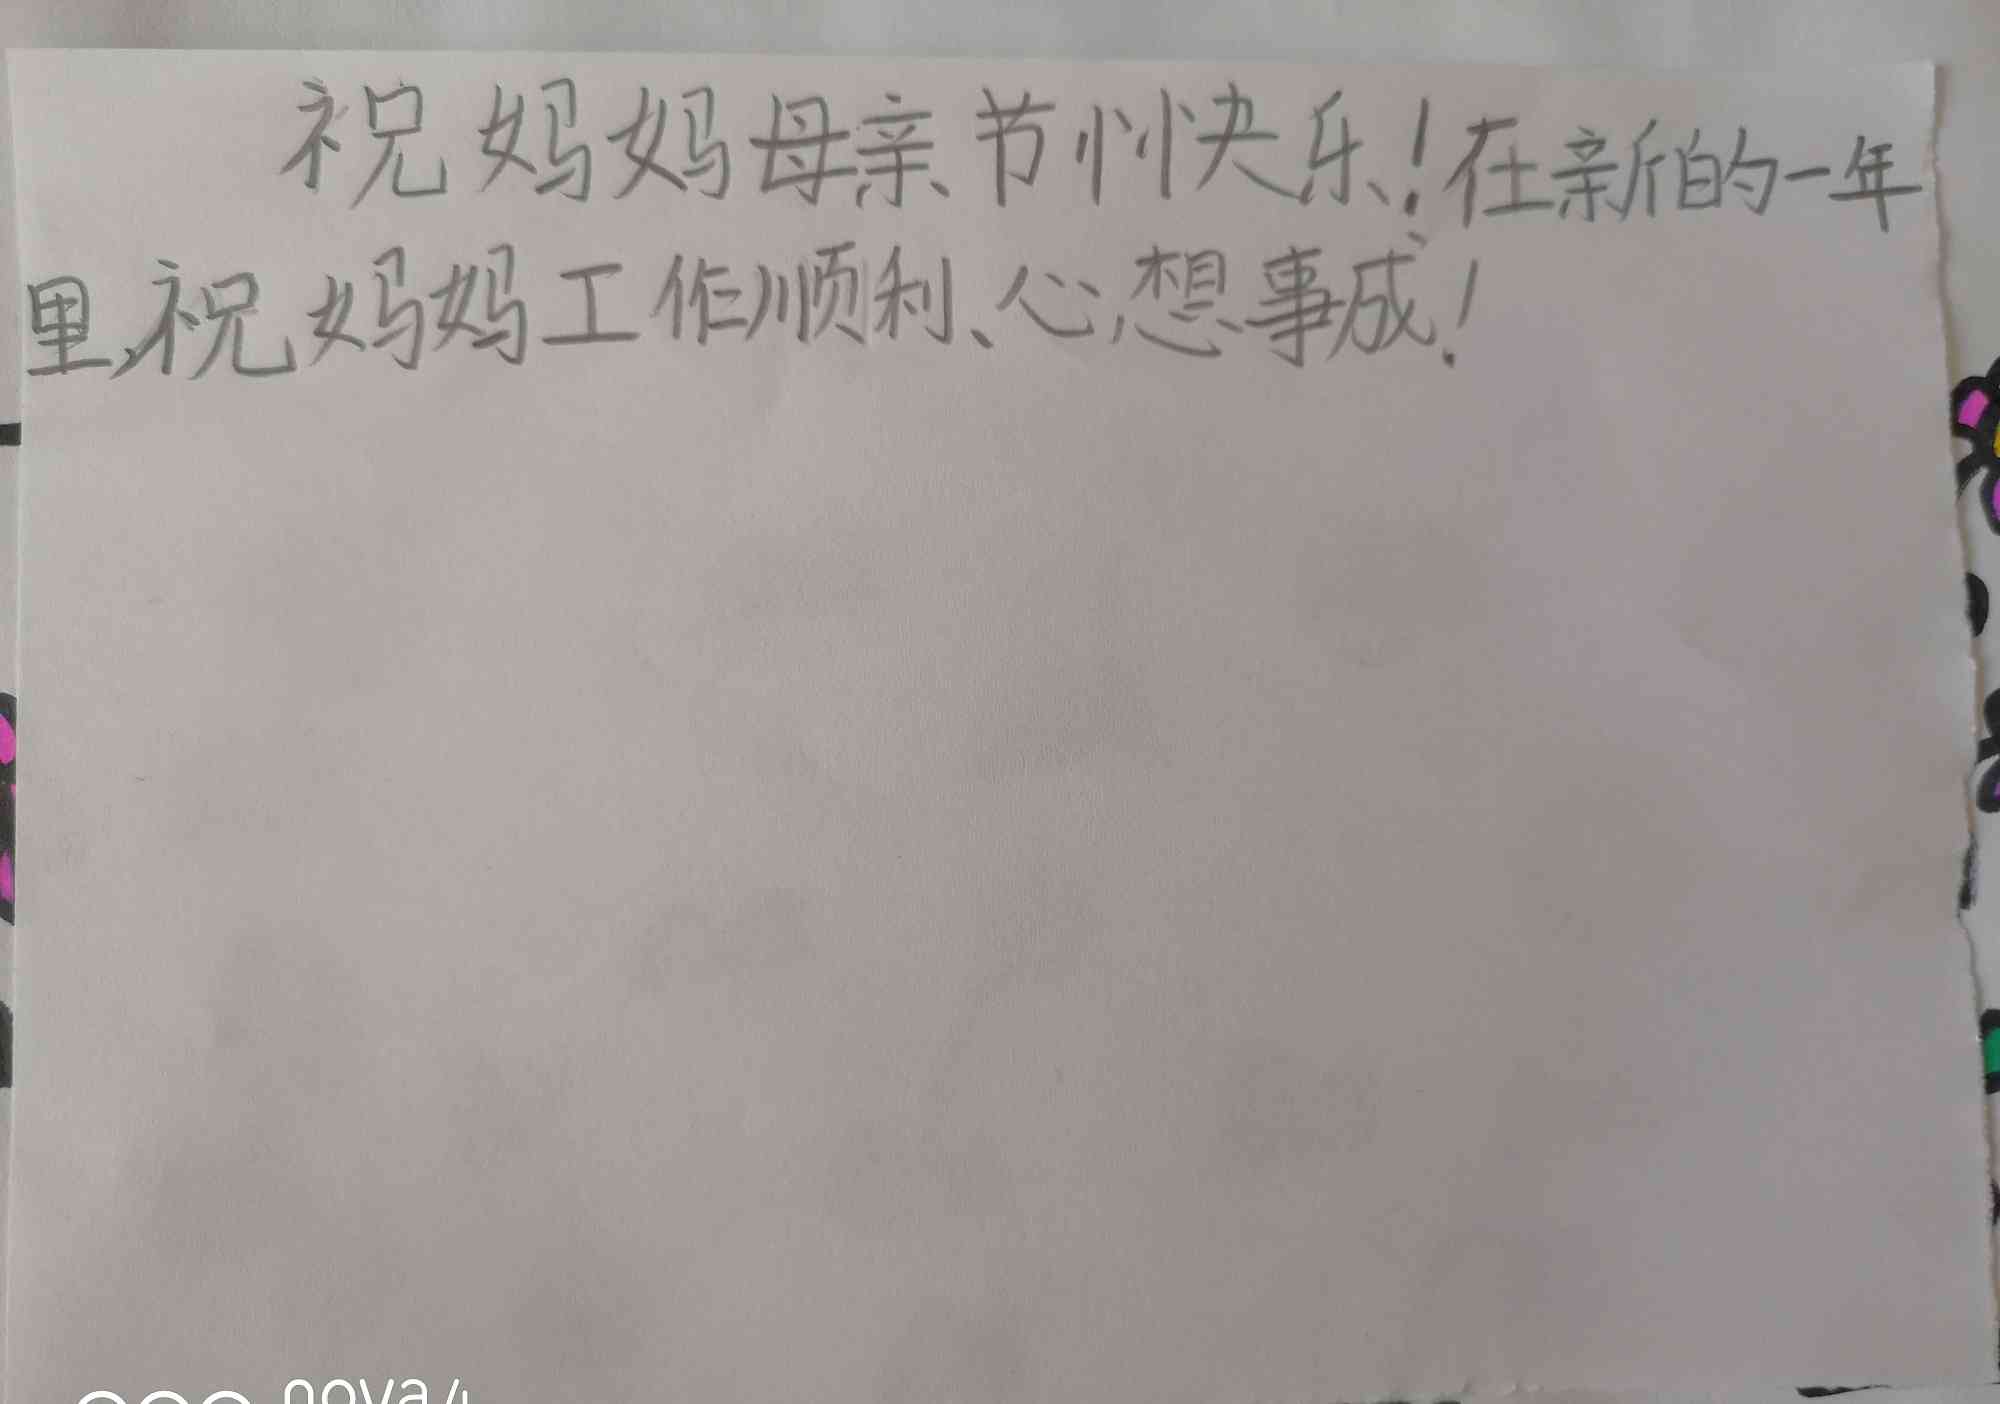 祝妈妈母亲节忄快乐！在新的一年
里，祝妈妈工作顺利、心想事成！
nova 4